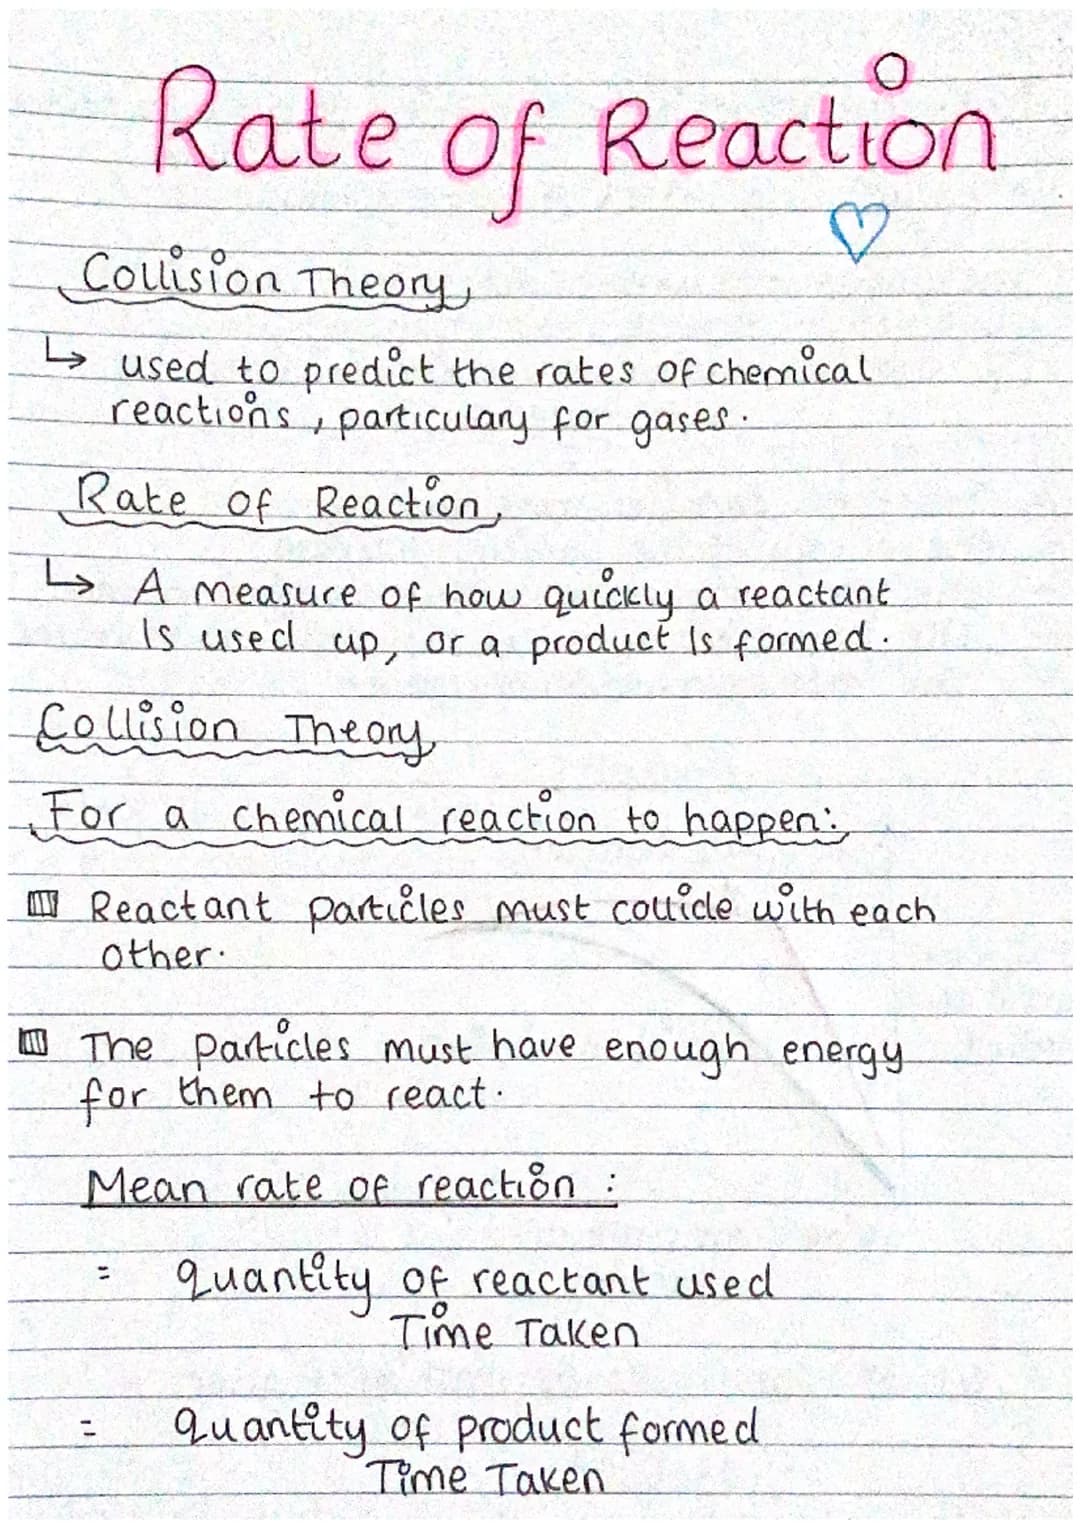 Rate of Reaction
Collision Theory
↳ used to predict the rates of chemical
reactions, particulary for gases.
Rate of Reaction
↳ A measure of how quickly a reactant
Is used up, or a product Is formed.
Collision Theory
For a chemical reaction to happen:
Reactant particles must collide with each
other.
The particles must have enough energy
for them to react.
Mean rate of reaction :
= quantity of reactant used
Time Taken
= quantity of product formed
Time Taken